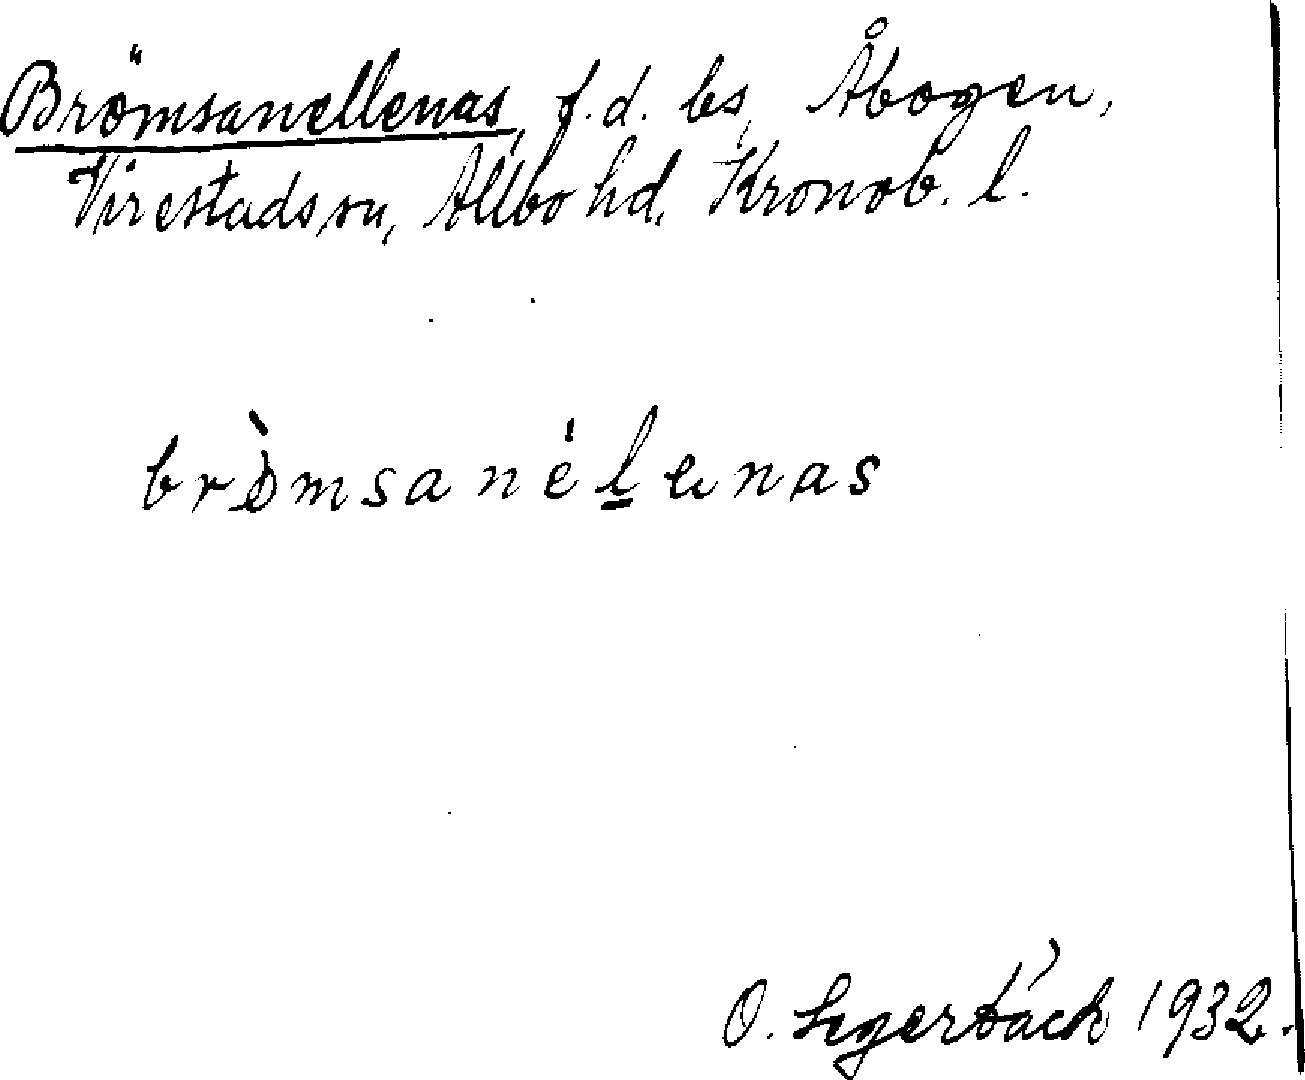 Brömsanellenas, f.d. bs, Åbogen,
Virestads sn, Allbo hd, Kronob. l.
bròmsanélenas
O. Segerbäck 1932.